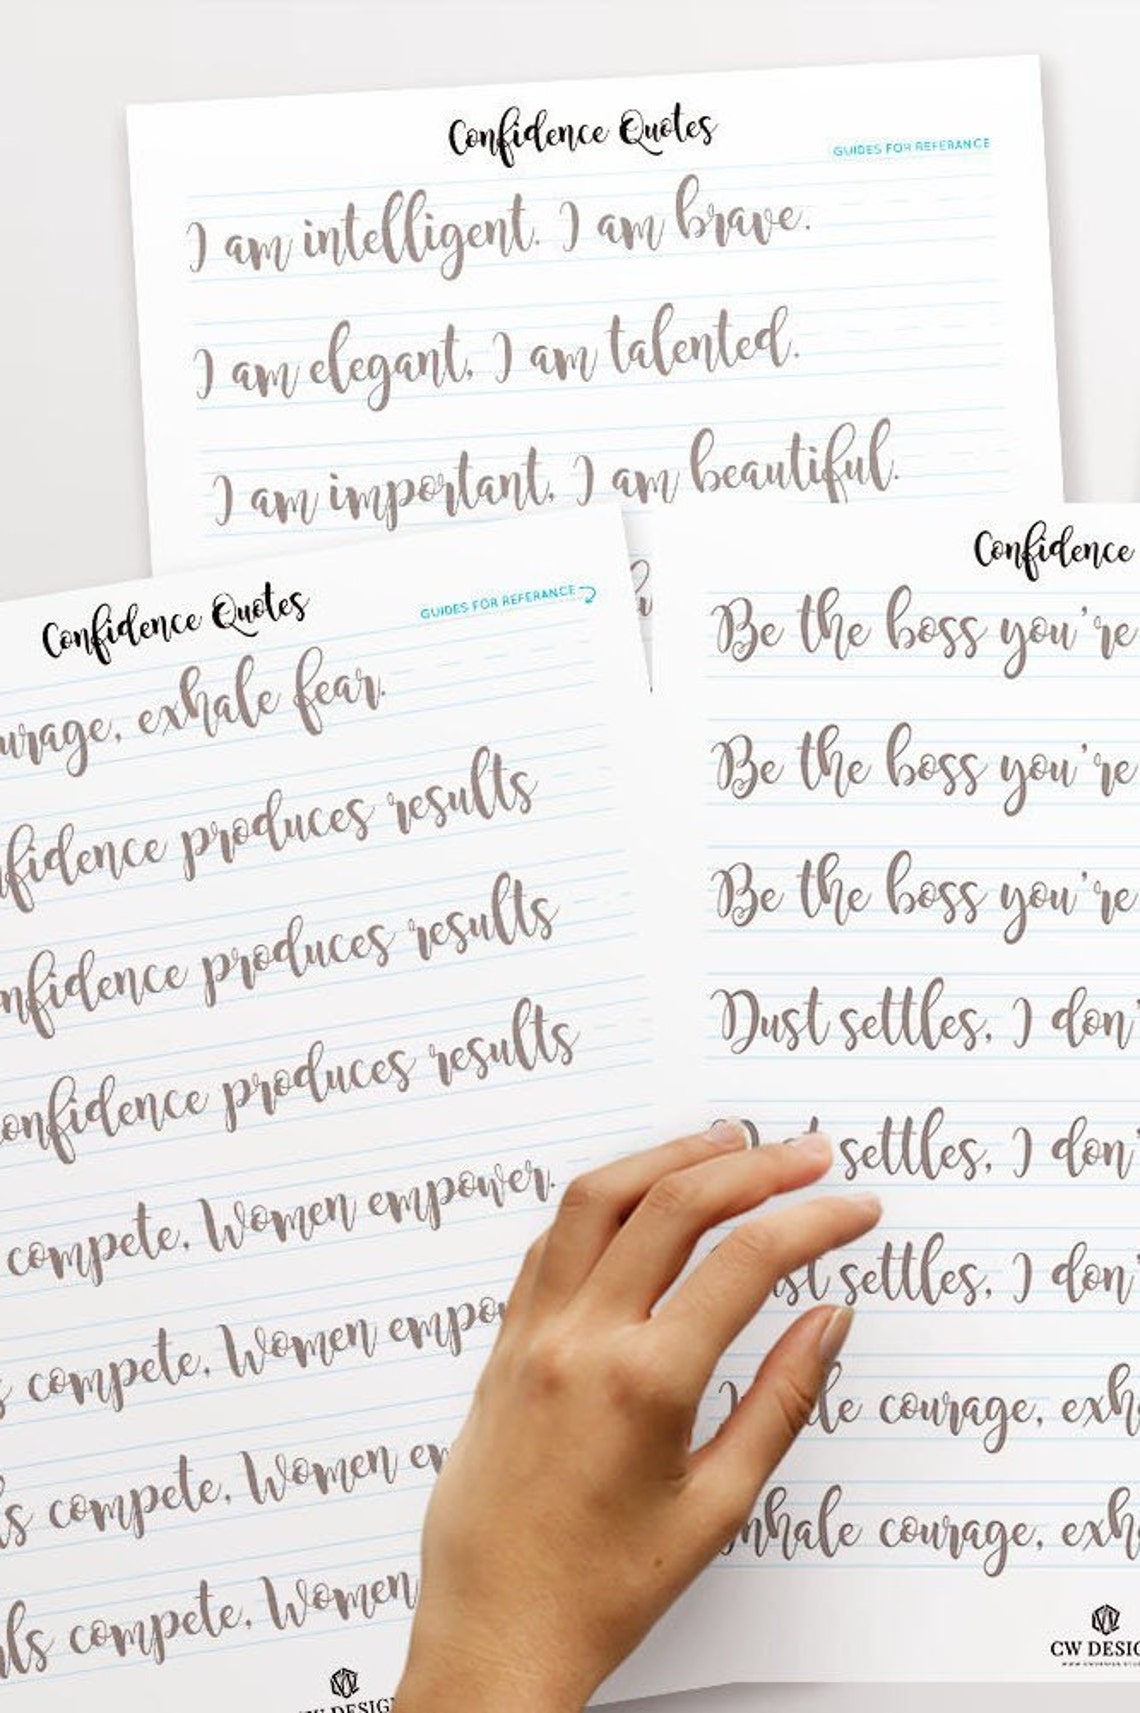 Confidence Quotes
GUIDES FOR REFERANCE
I am intelligent. I am brave.
I am elegant, I am talented.
I am important, I am beautiful.
Confidence Quotes
GUIDES FOR REFERANCE
exhale fear.
produces results
produces results
confidence produces results
compete, Women empower.
compete, Women
compete, Women
compete, Women
CW DESIGN
Confidence
Be the boss you're
Be the boss you're
Be the boss you're
Dust settles, I don'
settles, I don'
settles, I don'
courage,
Inhale courage,
CW DESIG